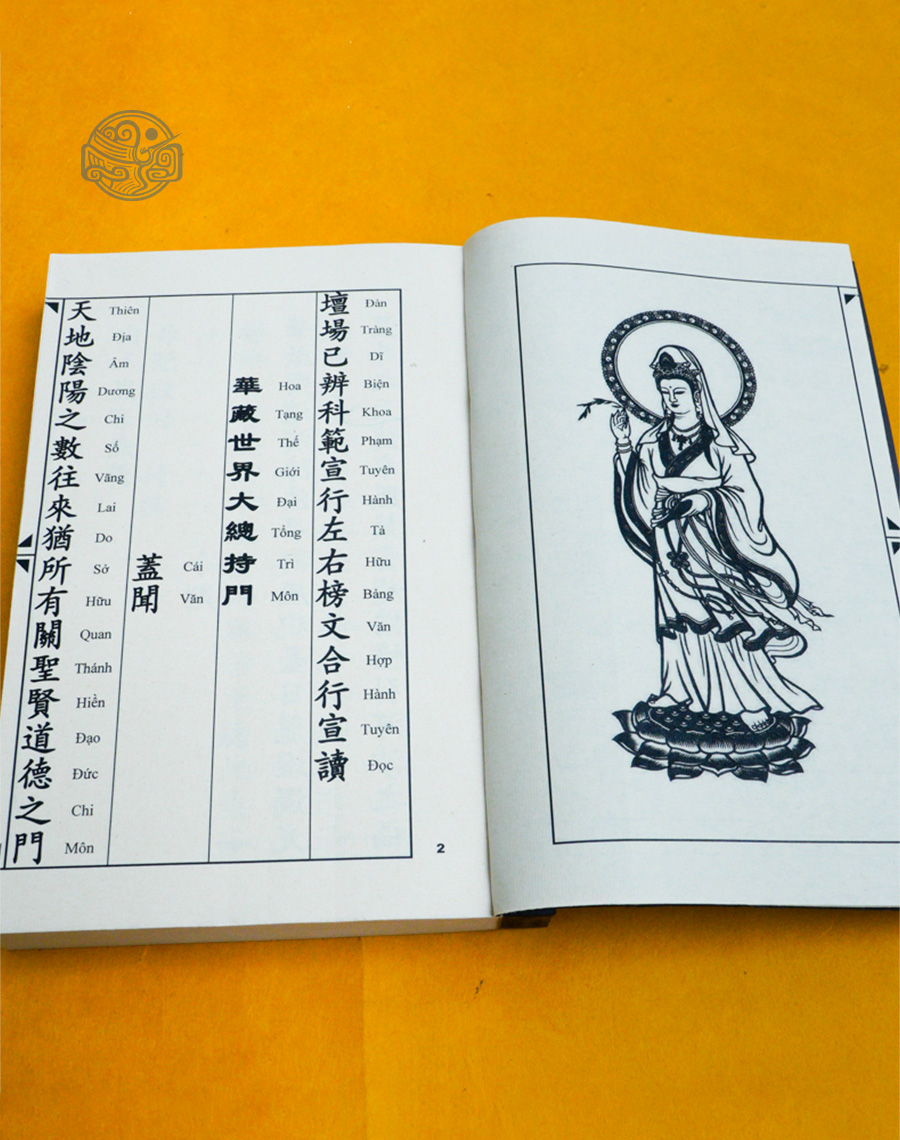 壇場已辨科範宣行左右榜文合行宣讀
Đàn Tràng Dĩ Biện Khoa Phạm Tuyên Hành Tả Hữu Bảng Văn Hợp Hành Tuyên Đọc
華藏世界大總持門
Hoa Tạng Thế Giới Đại Tổng Trì Môn
蓋聞
Cái Văn
天地陰陽之數往來猶所有關聖賢道德之門
Thiên Địa Âm Dương Chi Số Vãng Lai Do Sở Hữu Quan Thánh Hiền Đạo Đức Chi Môn
2